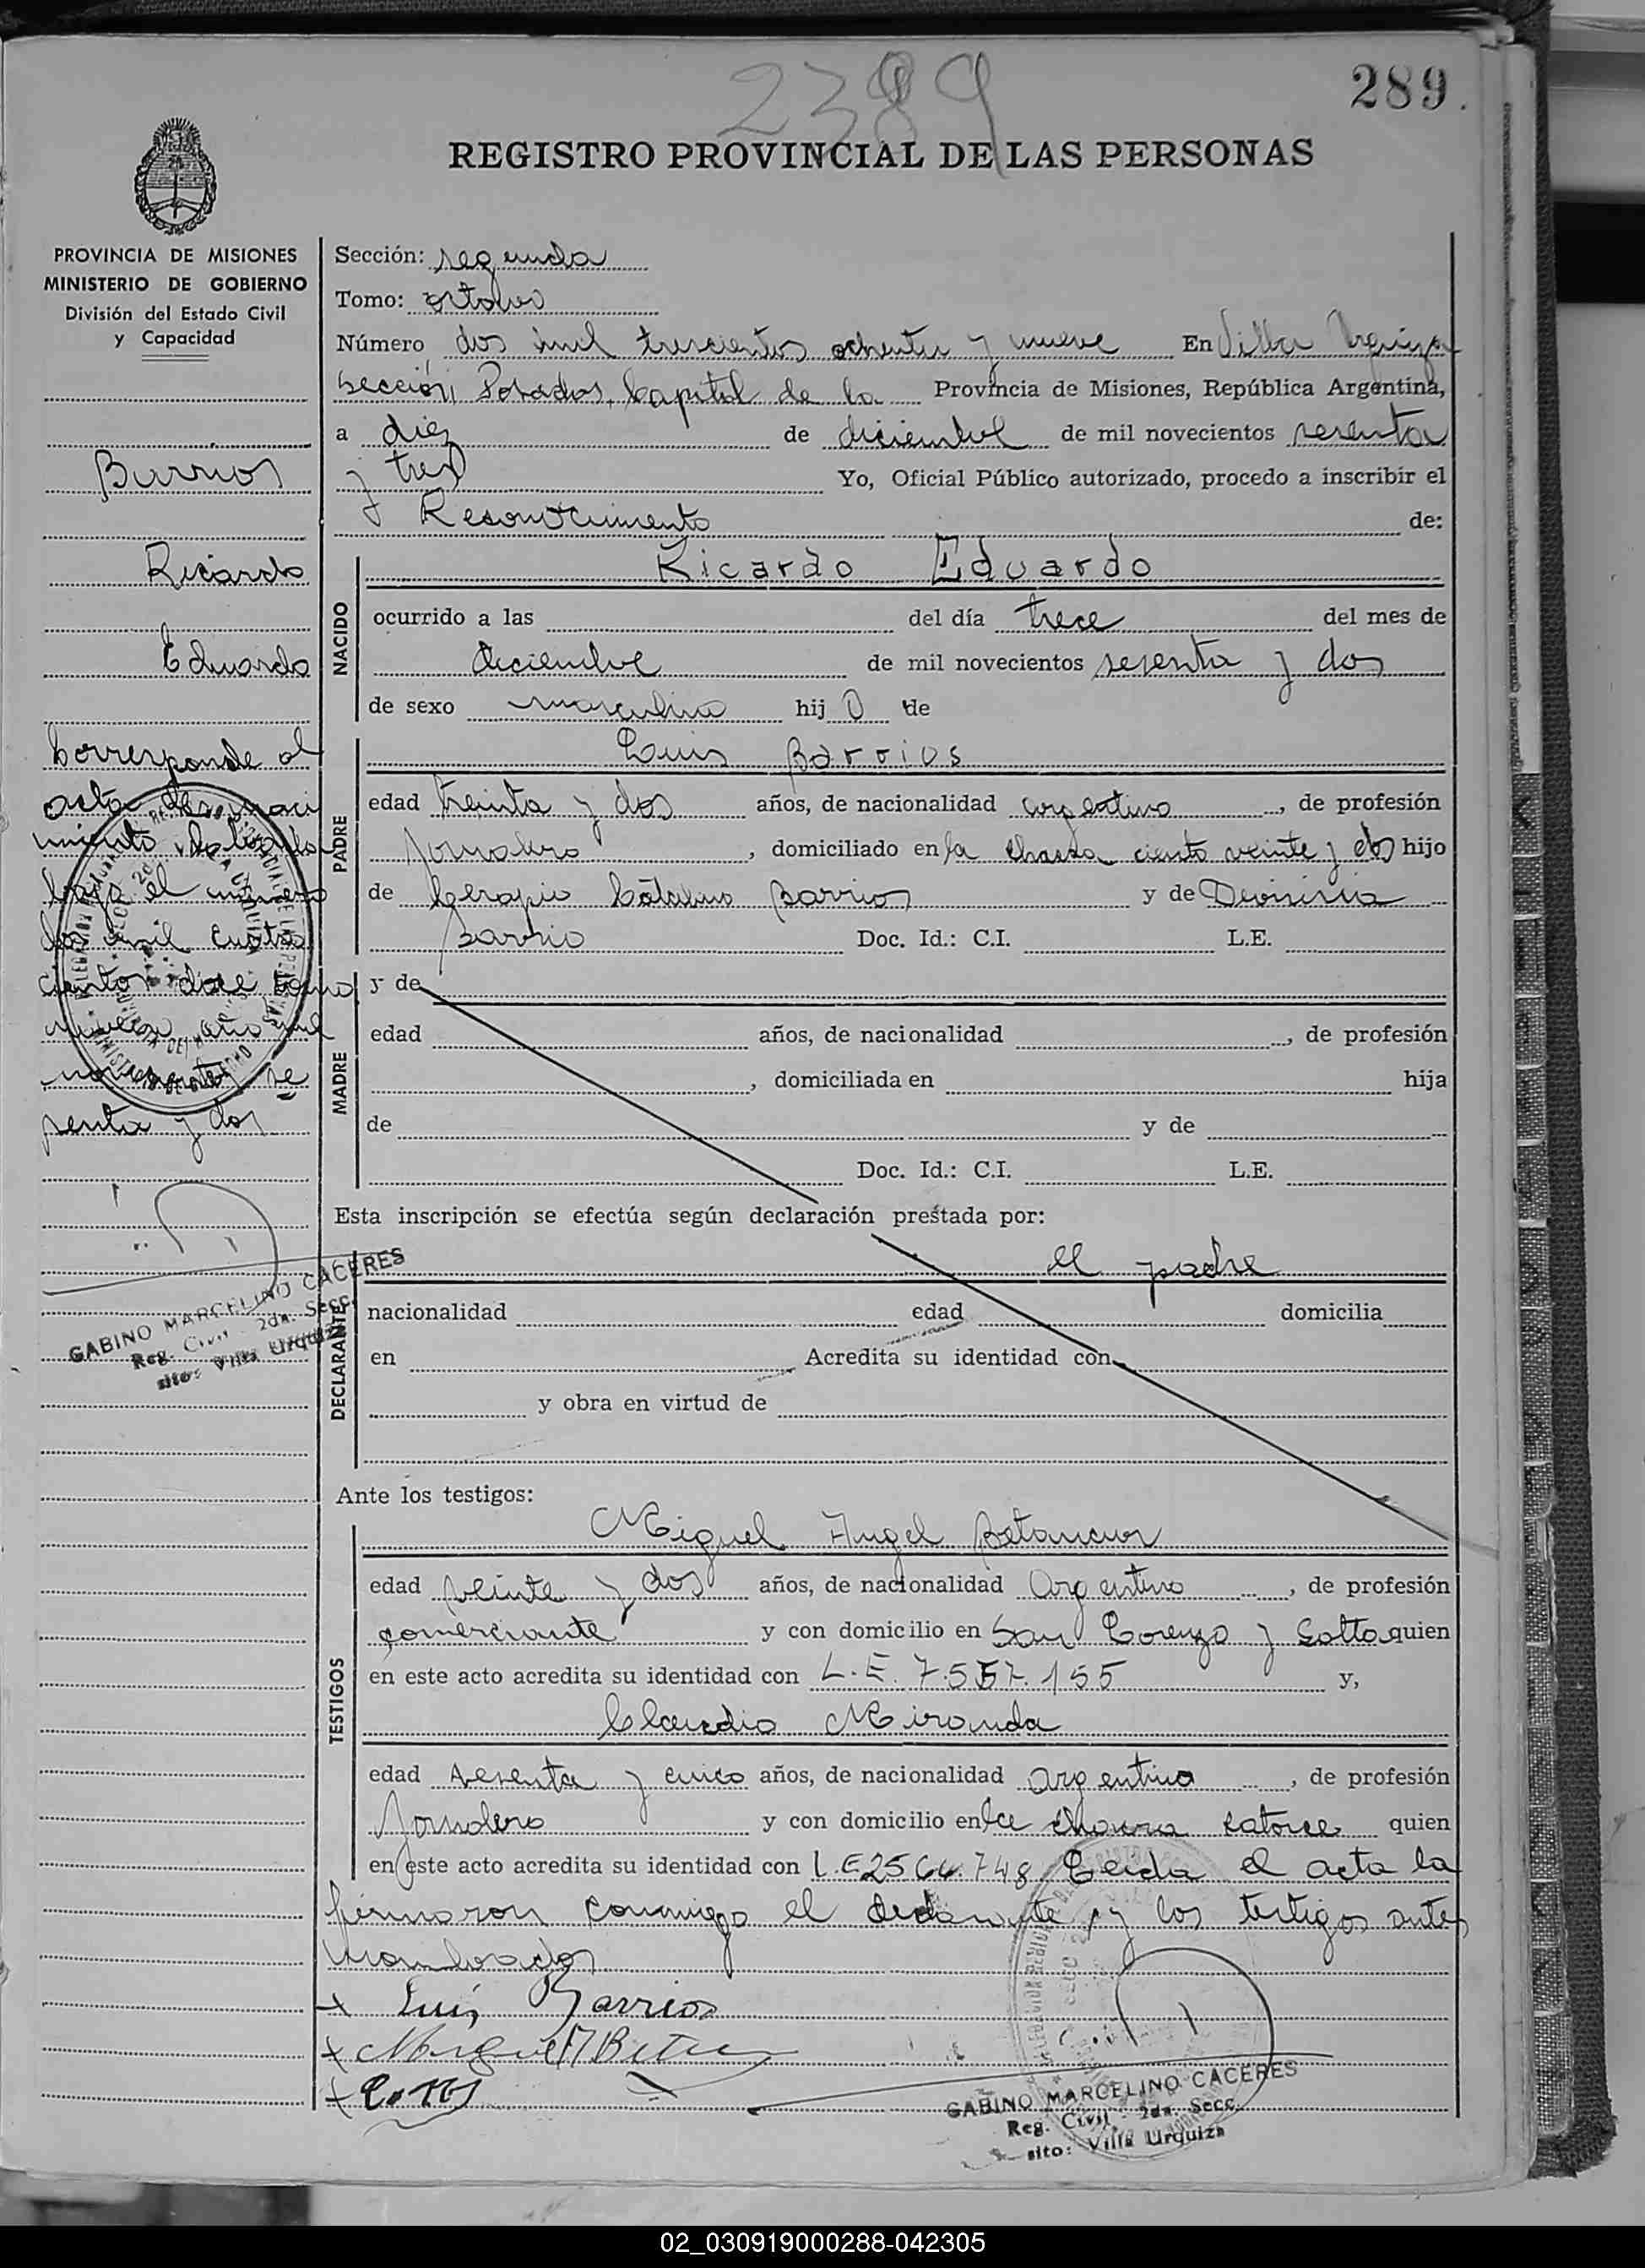 2389
289.
REGISTRO PROVINCIAL DE LAS PERSONAS
PROVINCIA DE MISIONES
MINISTERIO DE GOBIERNO
División del Estado Civil
y Capacidad
Barrios
Ricardo
Eduardo
Corresponde al
acta de
bajo el número
dos mil cuatro
cientos doce tomo
año mil
novecientos se
senta y dos
GABINO MARCELINO CACERES
Reg. Civil - 2da. Secc.
sito: Villa Urquiza
Sección: segunda
Tomo: octavo
Número dos mil trescientos ochenta y nueve En Villa Urquiza
Sección, Posadas, Capital de la Provincia de Misiones, República Argentina,
a diez de diciembre de mil novecientos sesenta
y tres Yo, Oficial Público autorizado, procedo a inscribir el
Reconocimiento de:
NACIDO
Ricardo Eduardo
ocurrido a las del día trece del mes de
diciembre de mil novecientos sesenta y dos
de sexo masculino hijo de
PADRE
Luis Barrios
edad treinta y dos años, de nacionalidad argentino, de profesión
Jornalero, domiciliado en la chacra ciento veinte y dos hijo
de Serapio Catalino Barrios y de
Barrio Doc. Id.: C.I. L.E.
MADRE
y de
edad años, de nacionalidad , de profesión
, domiciliada en hija
de y de
Doc. Id.: C.I. L.E.
Esta inscripción se efectúa según declaración prestada por:
DECLARANTE
el padre
nacionalidad edad domicilia
en Acredita su identidad con
y obra en virtud de
Ante los testigos:
TESTIGOS
Miguel Angel Betancur
edad veinte y dos años, de nacionalidad Argentino, de profesión
comerciante y con domicilio en San Lorenzo y Salta quien
en este acto acredita su identidad con L.E. 7.557.155 y,
Claudio Miranda
edad sesenta y cinco años, de nacionalidad argentino, de profesión
Jornalero y con domicilio en la chacra catorce quien
en este acto acredita su identidad con L.E. 2564.748 Leida el acta la
firmaron conmigo el declarante y los testigos antes
nombrados
x Luis Barrios
x Miguel A Betancur
x
GABINO MARCELINO CACERES
Reg. Civil - 2da. Secc.
sito: Villa Urquiza
02_030919000288-042305